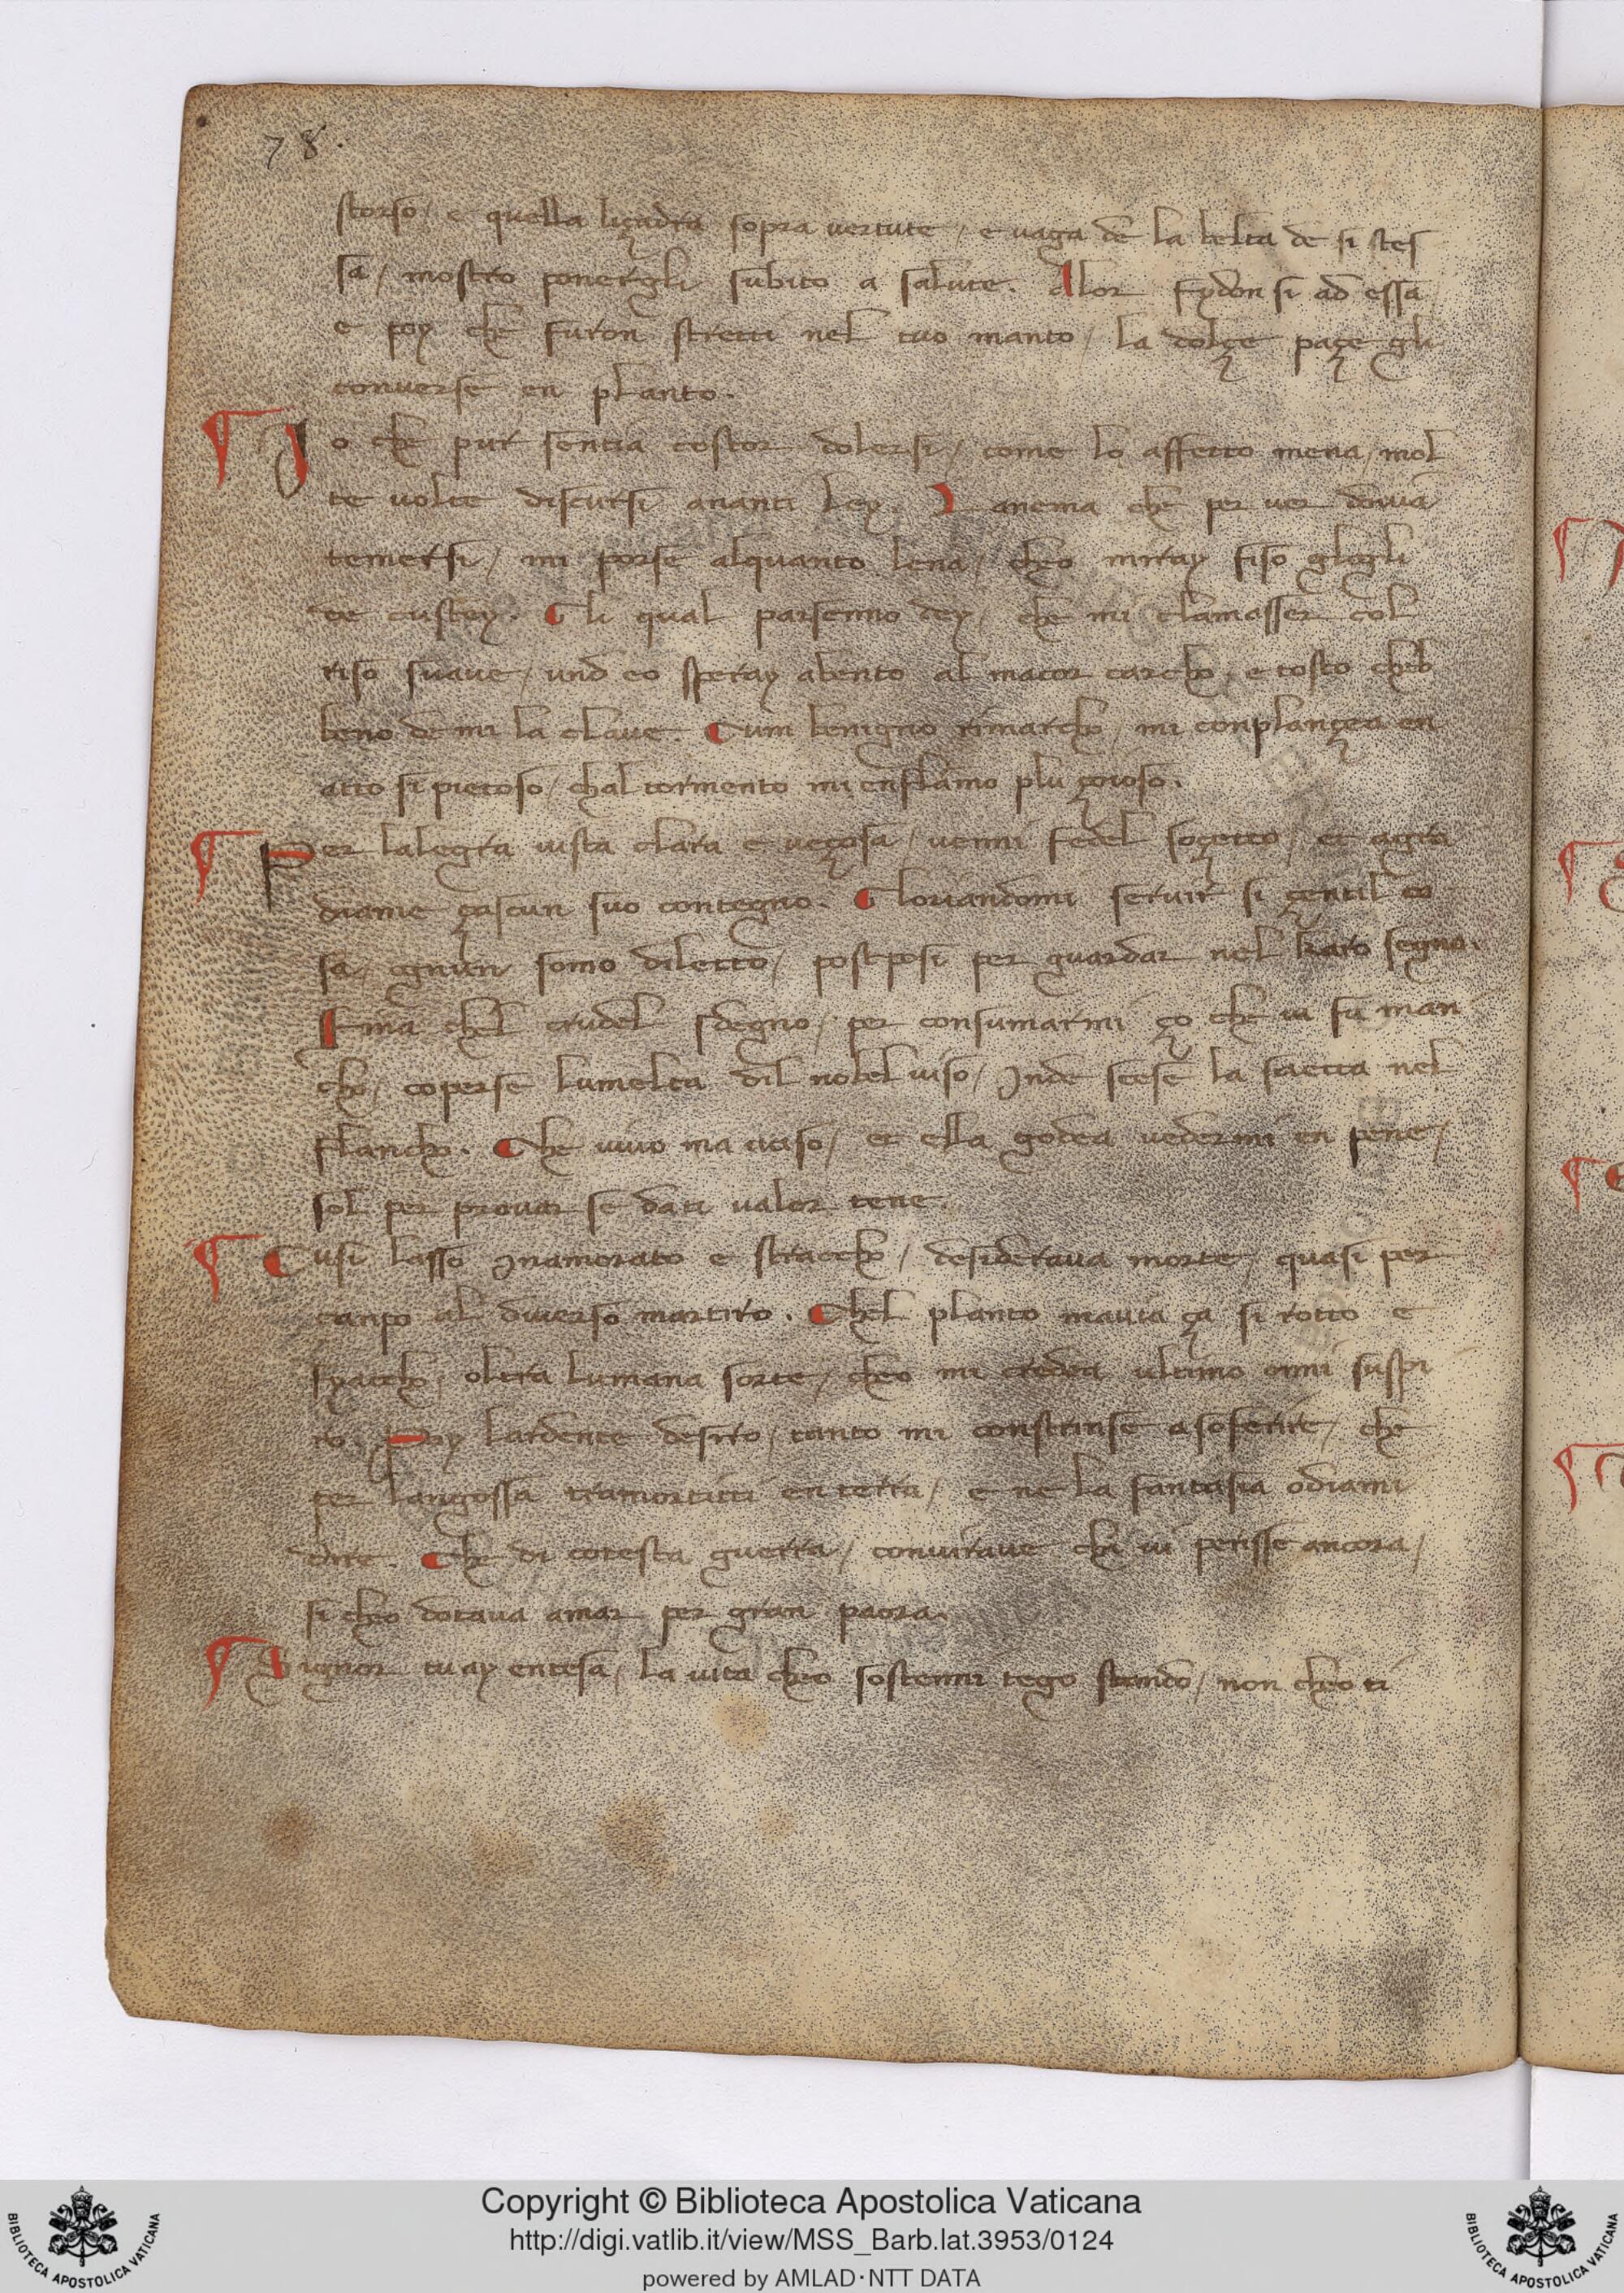 78.
storso / e quella liçadra sopra uertute / e uaga de la belta de si stes
sa / mostro ponergli subito a salute. Alor fydonsi ad essa
e poy che furon stretti nel tuo manto / la dolçe paçe gli
conuerse en planto.
Jo che pur sentia costor dolersi / come lo affetto mena / mol
te uolte discursi ananti ley. L anema che per uer douia
temersi / mi porse alquanto lena / cheo miray fiso gliogli
de custey. Gli qual parsenno dey / che mi clamasser col
riso suaue / und eo speray abento al maior carcho / e tosto cheb
beno de mi la claue. Cum benigno rimarcho / mi conplançea en
atto si pietoso / chal tormento mi enflamo plu gioioso.
Per lalegra uista clara e ueçosa uenni fedel soçetto / et agra
diame çascun suo contegno. Gloriandomi seruir si gentil co
sa / ognun somo diletto / postposi per guardar nel karo segno.
Ama chel crudel sdegno / per consumarmi ço che in fu man
cho / coperse lumelta dil nobel uiso / Inde scese la saetta nel
flancho. Che uiuo ma uciso / et ella godea uedermi en pene /
sol per prouar se da ti ualor tene.
Cusi lasso Inamorato e straccho / desideraua morte / quasi per
canpo al diuerso martiro. Chel planto mauia ça si rotto e
fyaccho / oltra lumana sorte / cheo mi credea ultimo onni suspi
ro. Poy lardente desiro / tanto mi constrinse a soferire / che
per langossa tramortitti en terra / e ne la fantasia odiami
dire. Che di cotesta guerra / conuiraue chi ui perisse ancora /
si cheo dotaua amar per gran paora.
Signor tu ay entesa / la uita cheo sostenni tego stando / non cheo ti
Copyright © Biblioteca Apostolica Vaticana
http://digi.vatlib.it/view/MSS_Barb.lat.3953/0124
powered by AMLAD·NTT DATA
BIBLIOTECA APOSTOLICA VATICANA
BIBLIOTECA APOSTOLICA VATICANA